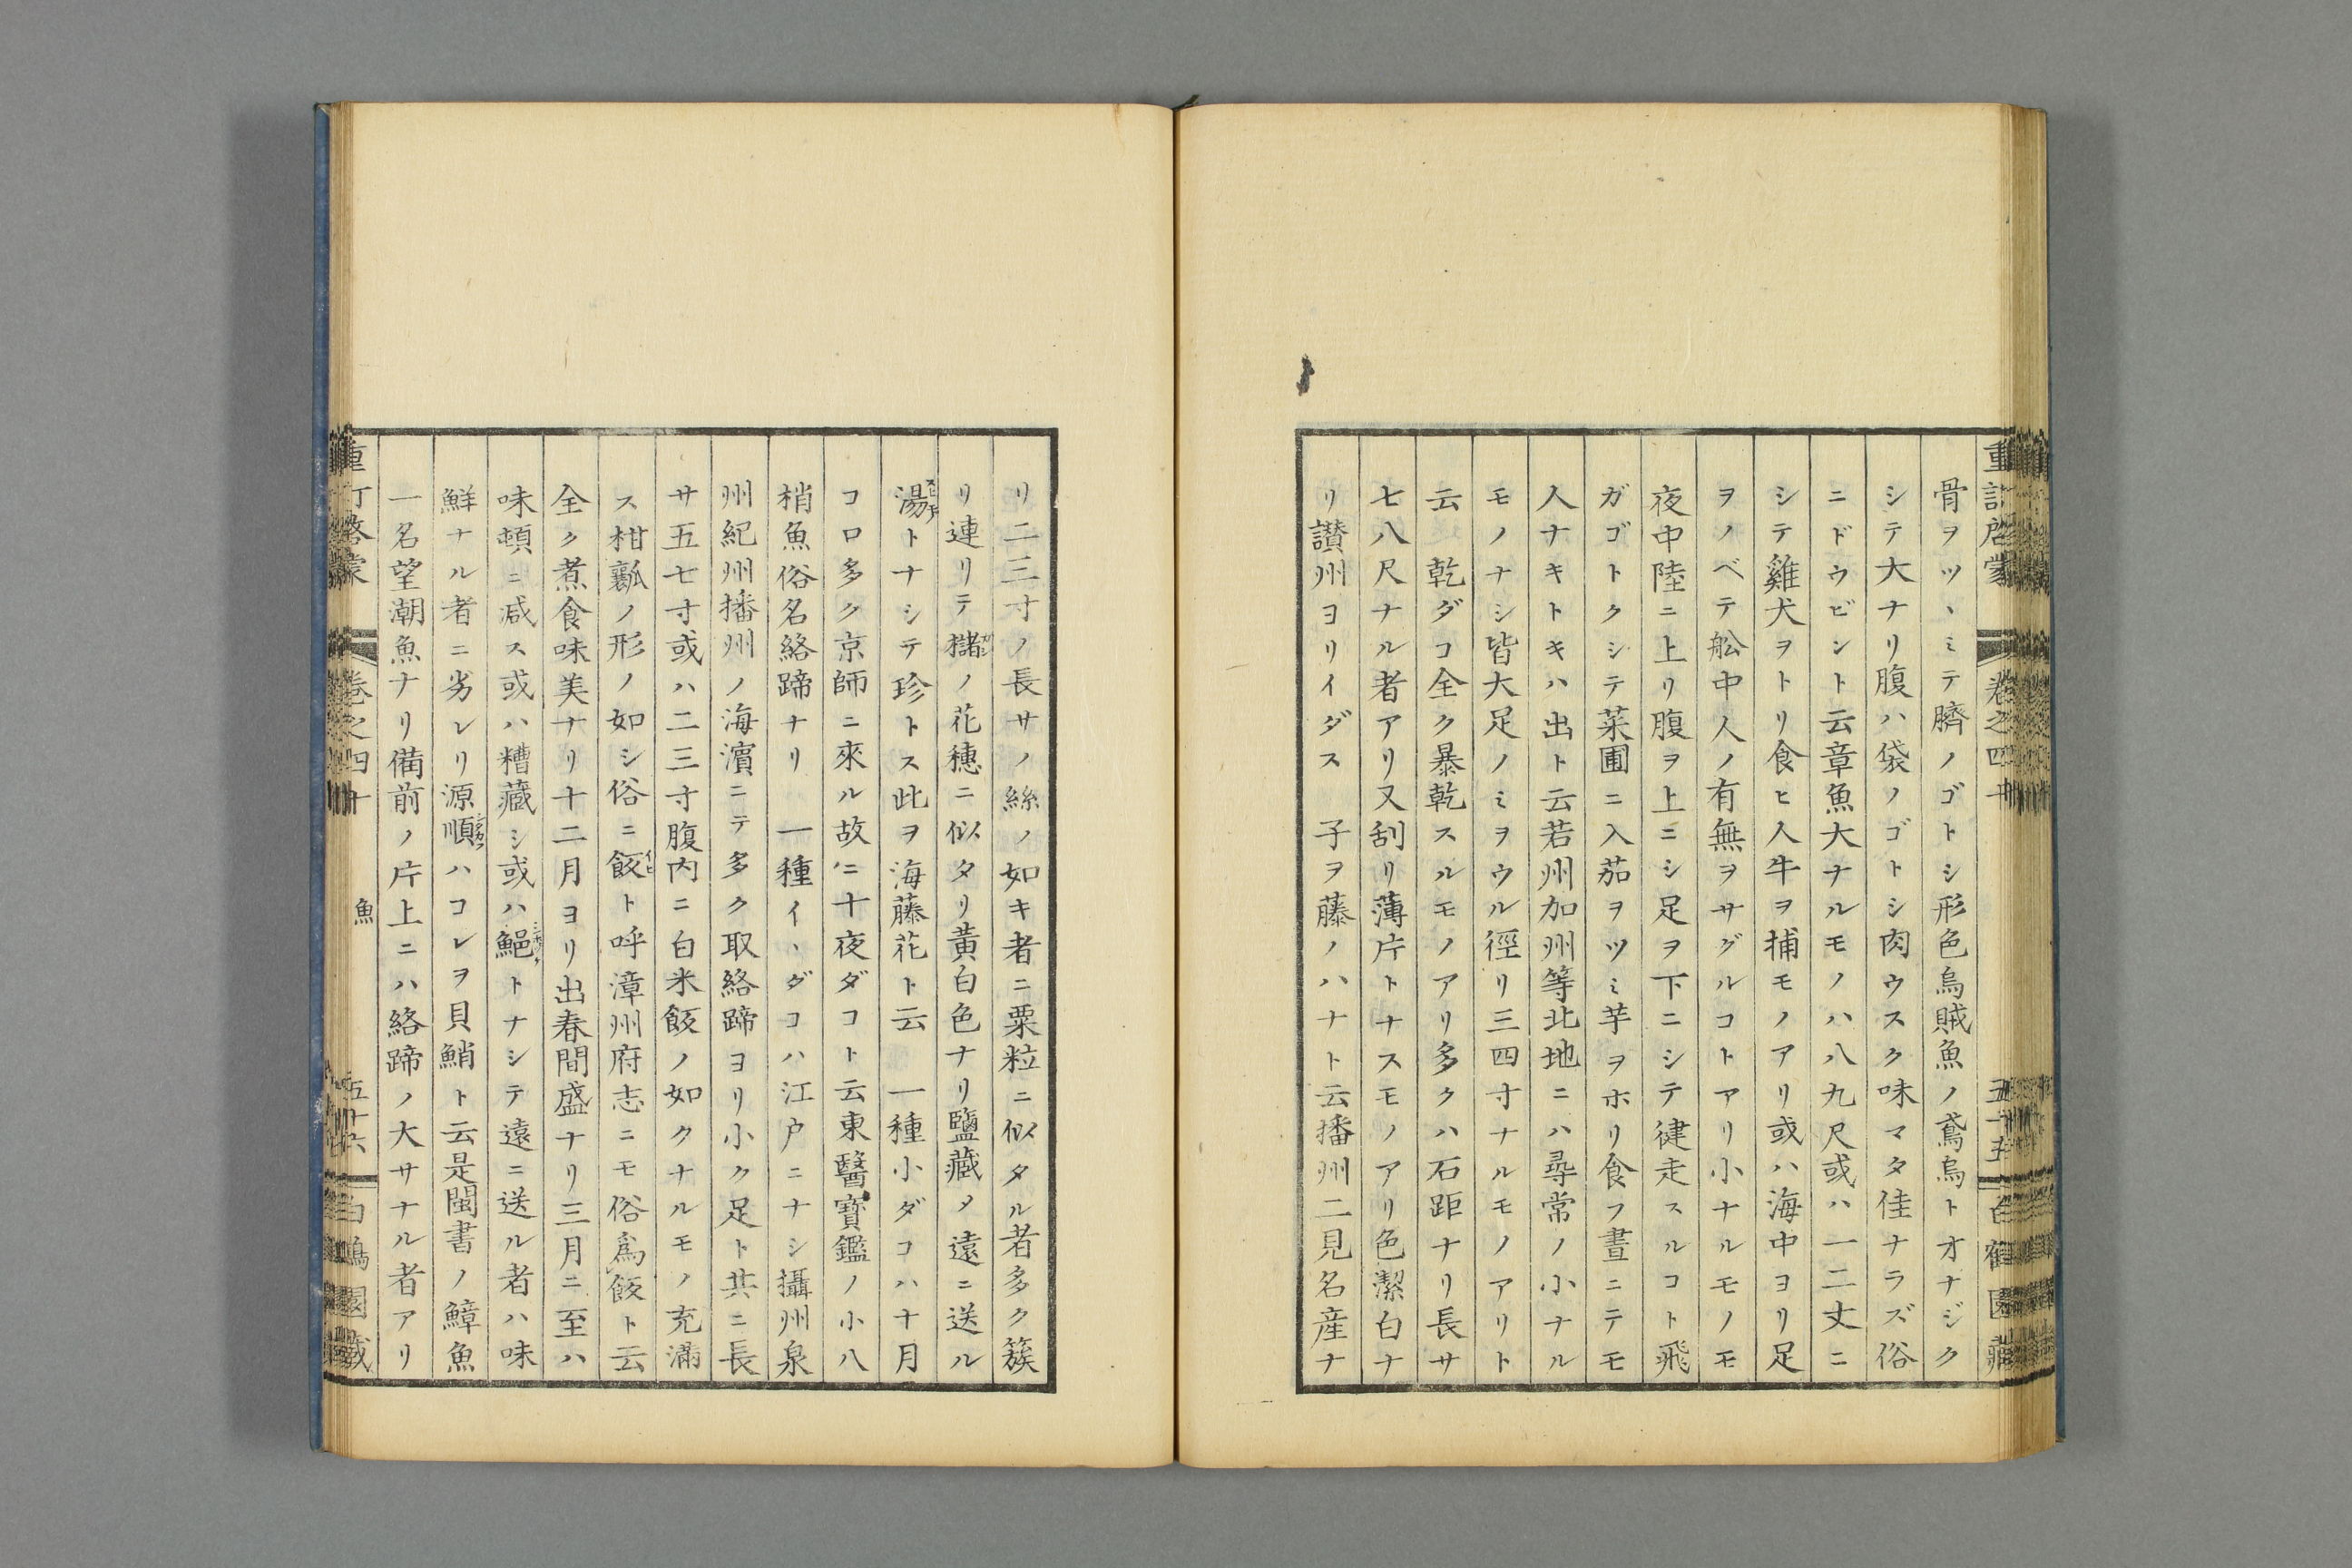 重訂啓蒙 卷之四十 五十五
骨ヲツヽミテ臍ノゴトシ形色烏賊魚ノ鳶烏トオナジク
シテ大ナリ腹ハ袋ノゴトシ肉ウスク味マタ佳ナラズ俗
ニドウビント云章魚大ナルモノハ八九尺或ハ一二丈ニ
シテ雞犬ヲトリ食ヒ人牛ヲ捕モノアリ或ハ海中ヨリ足
ヲノベテ舩中人ノ有無ヲサグルコトアリ小ナルモノモ
夜中陸ニ上リ腹ヲ上ニシ足ヲ下ニシテ徤走スルコト飛
ガゴトクシテ菜圃ニ入茄ヲツミ芋ヲホリ食フ晝ニテモ
人ナキトキハ出ト云若州加州等北地ニハ尋常ノ小ナル
モノナシ皆大足ノミヲウル徑リ三四寸ナルモノアリト
云 乾ダコ全ク暴乾スルモノアリ多クハ石距ナリ長サ
七八尺ナル者アリ又刮リ薄片トナスモノアリ色潔白ナ
リ讃州ヨリイダス 子ヲ藤ノハナト云播州二見名産ナ
リ二三寸ノ長サノ絲ノ如キ者ニ粟粒ニ似タル者多ク簇
リ連リテ櫧ノ花穗ニ似タリ黃白色ナリ鹽藏メ遠ニ送ル
湯トナシテ珍トス此ヲ海藤花ト云 一種小ダコハ十月
コロ多ク京師ニ來ル故ニ十夜ダコト云東醫寶鑑ノ小八
梢魚俗名絡蹄ナリ 一種イヽダコハ江戸ニナシ攝州泉
州紀州播州ノ海濵ニテ多ク取絡蹄ヨリ小ク足ト共ニ長
サ五七寸或ハ二三寸腹内ニ白米飯ノ如クナルモノ充滿
ス柑瓤ノ形ノ如シ俗ニ飯ト呼漳州府志ニモ俗爲飯ト云
全ク煮食味美ナリ十二月ヨリ出春間盛ナリ三月ニ至ハ
味頓ニ减ス或ハ糟藏シ或ハ鮑トナシテ遠ニ送ル者ハ味
鮮ナル者ニ劣レリ源順ハコレヲ貝鮹ト云是閩書ノ鱆魚
一名望潮魚ナリ備前ノ片上ニハ絡蹄ノ大サナル者アリ
卷之四十 魚 五十六